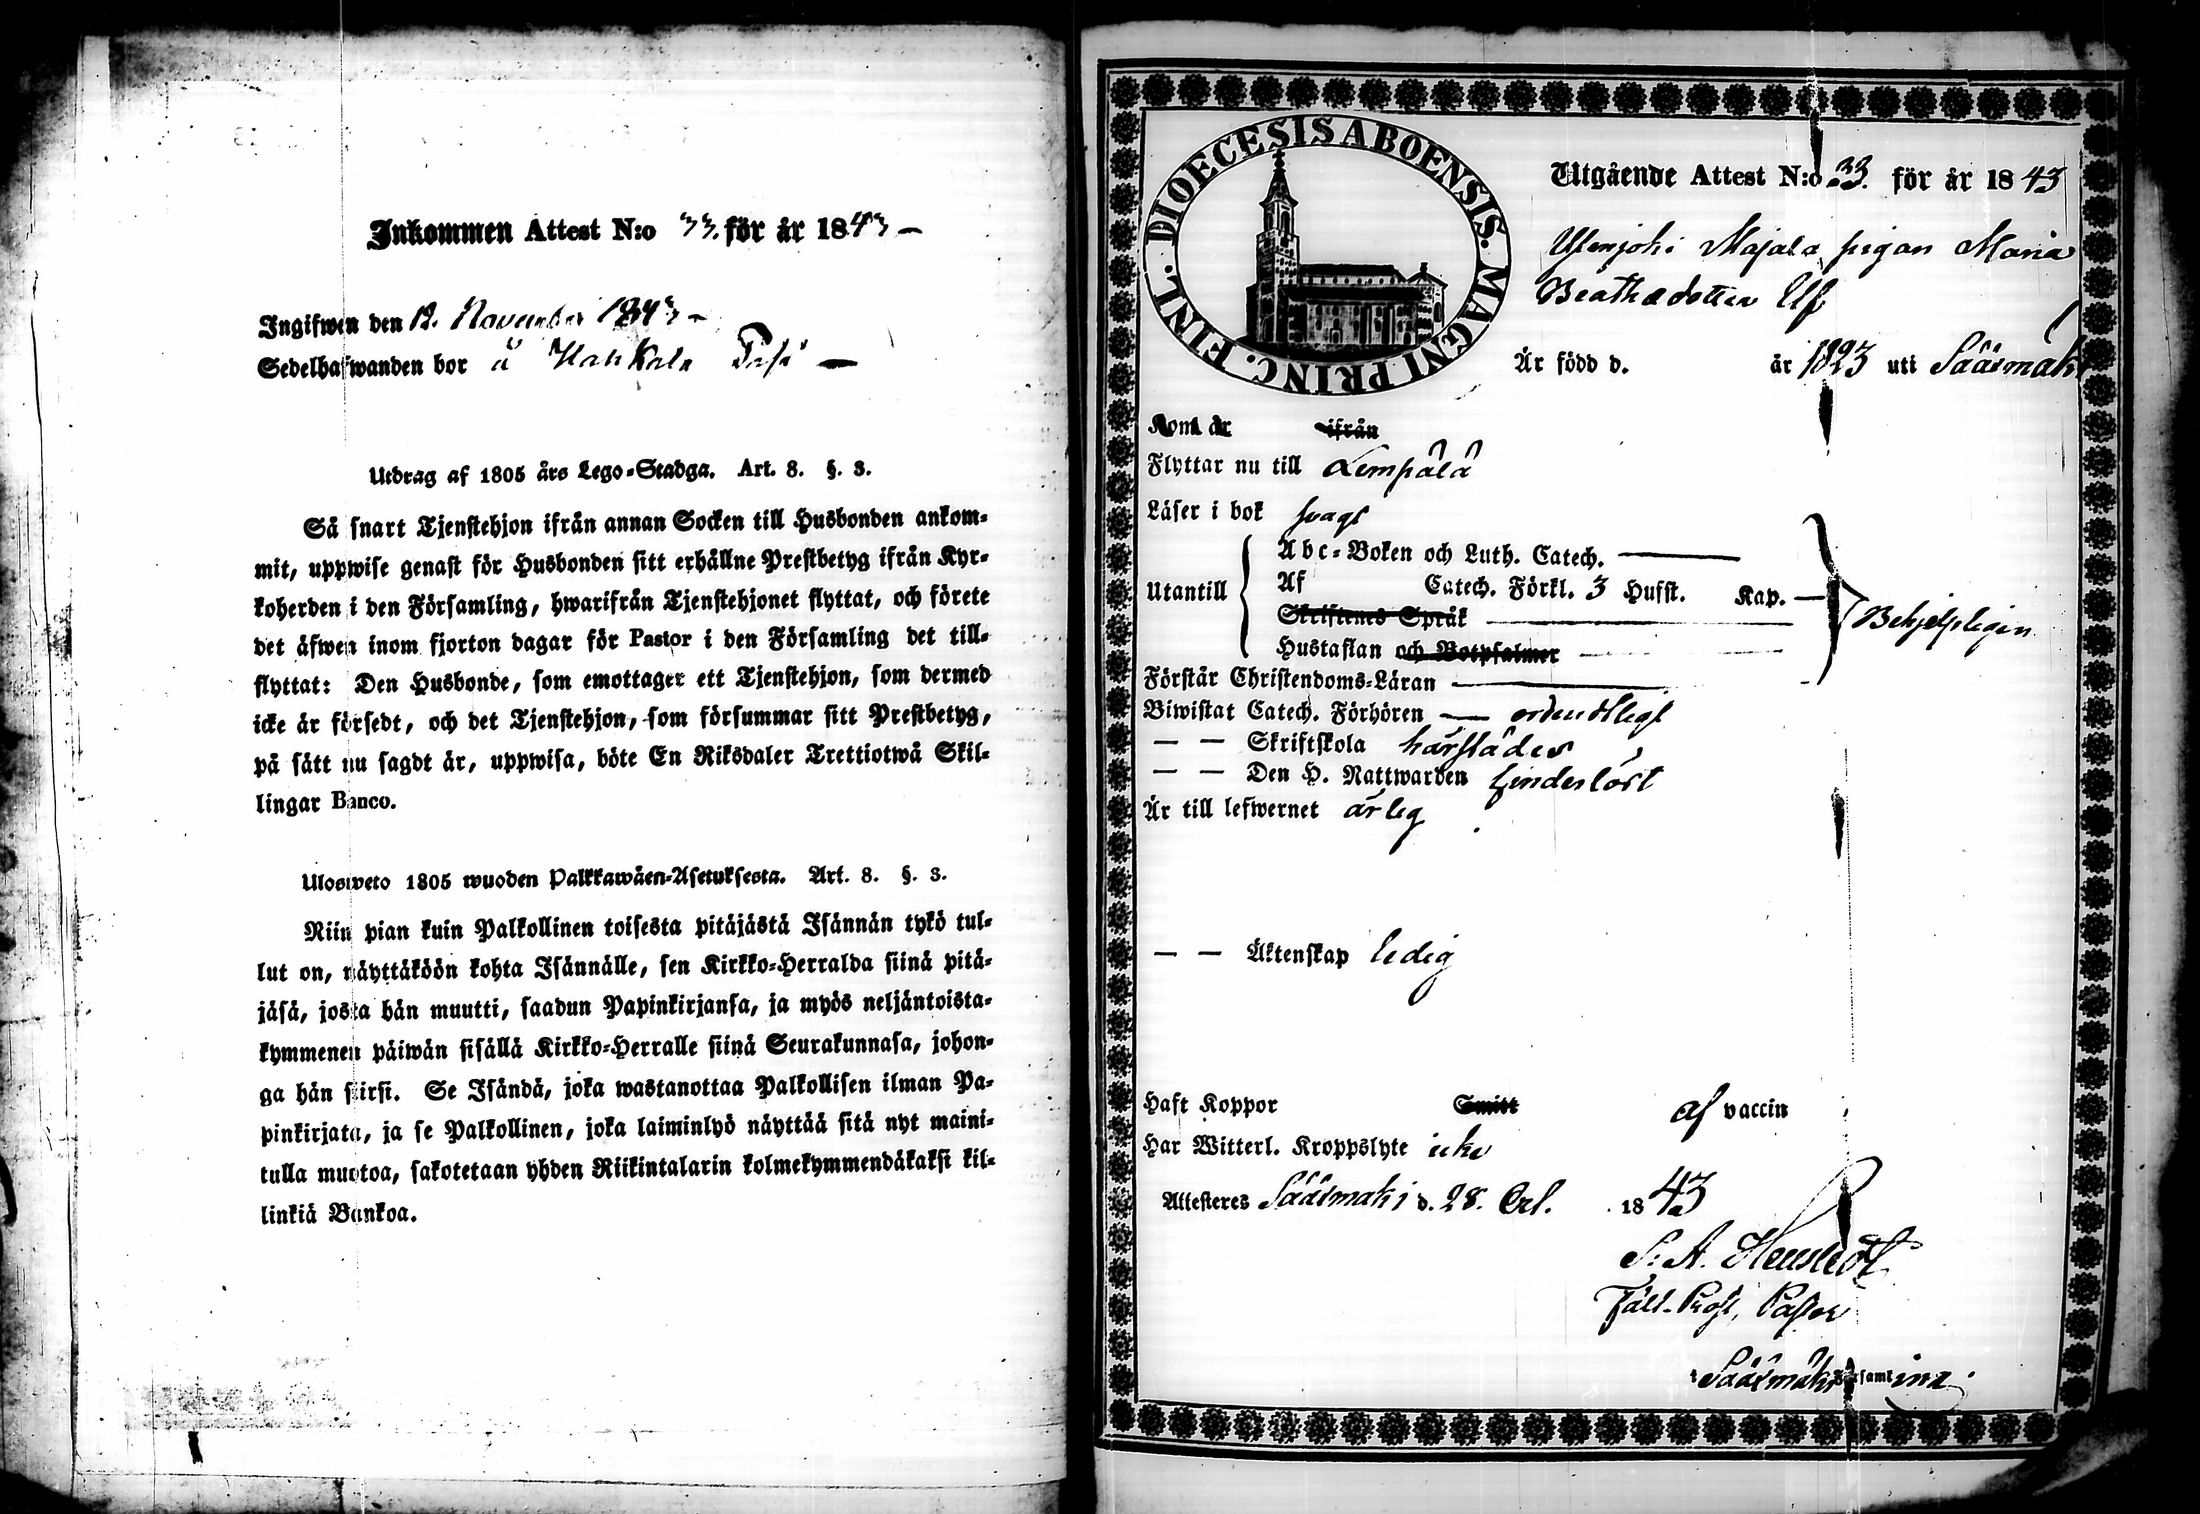 Inkommen Attest N:o 33. för år 1843 –
Ingifwen den 12. November 1843 –
Sedelhafwanden bor å Hakkala –
Utdrag af 1805 års Lego-Stadga. Art. 8. §. 3.
Så snart Tjenstehjon ifrån annan Socken till Husbonden ankom-
mit, uppwise genast för Husbonden sitt erhållne Prestbetyg ifrån Kyr-
koherden i den Församling, hwarifrån Tjenstehjonet flyttat, och förete
det äfwen inom fjorton dagar för Pastor i den Församling det till-
flyttat: Den Husbonde, som emottager ett Tjenstehjon, som dermed
icke är försedt, och det Tjenstehjon, som försummar sitt Prestbetyg,
på sätt nu sagdt är, uppwisa, böte En Riksdaler Trettiotwå Skil-
lingar Banco.
Ulosweto 1805 wuoden Palkkawäen-Asetuksesta. Art. 8. §. 3.
Niin pian kuin Palkollinen toisesta pitäjästä Isännän tykö tul-
lut on, näyttäköön kohta Isännälle, sen Kirkko-Herralda siinä pitä-
jäsä, josta hän muutti, saadun Papinkirjansa, ja myös neljäntoista-
kymmenen päiwän sisällä Kirkko-Herralle siinä Seurakunnasa, johon-
ga hän siirsi. Se Isändä, joka wastanottaa Palkollisen ilman Pa-
pinkirjata, ja se Palkollinen, joka laiminlyö näyttää sitä nyt maini-
tulla muotoa, sakotetaan yhden Riikintalarin kolmekymmendäkaksi kil-
linkiä Bankoa.
DIOECESIS ABOENSIS. MAGNI PRINC. FINL.
Utgående Attest N:o 33. för år 1843
Majala pigan Maria
Beathædotter Ulf
Är född d. år 1823 uti Sääsmäki
Kom år ifrån
Flyttar nu till Lempälä
Läser i bok svagt
Utantill
Abc-Boken och Luth. Catech.
Af Catech. Förkl. 3 Hufst. Kap.
Skriftenes Språk
Hustaflan och Botpsalmer
Behjelpligen
Förstår Christendoms-Läran
Biwistat Catech. Förhören — ordentligt
— — Skriftskola härstädes
— — Den H. Nattwarden hinderlöst
Är till lefwernet ärlig
— — Äktenskap ledig
Haft Koppor Smitt af vaccin
Har Witterl. Kroppslyte icke
Attesteres Sääsmäki d. 28. Oct. 1843
F. A. Hellstedt
Fält-Prost, Pastor
i Sääsmäki Församling.